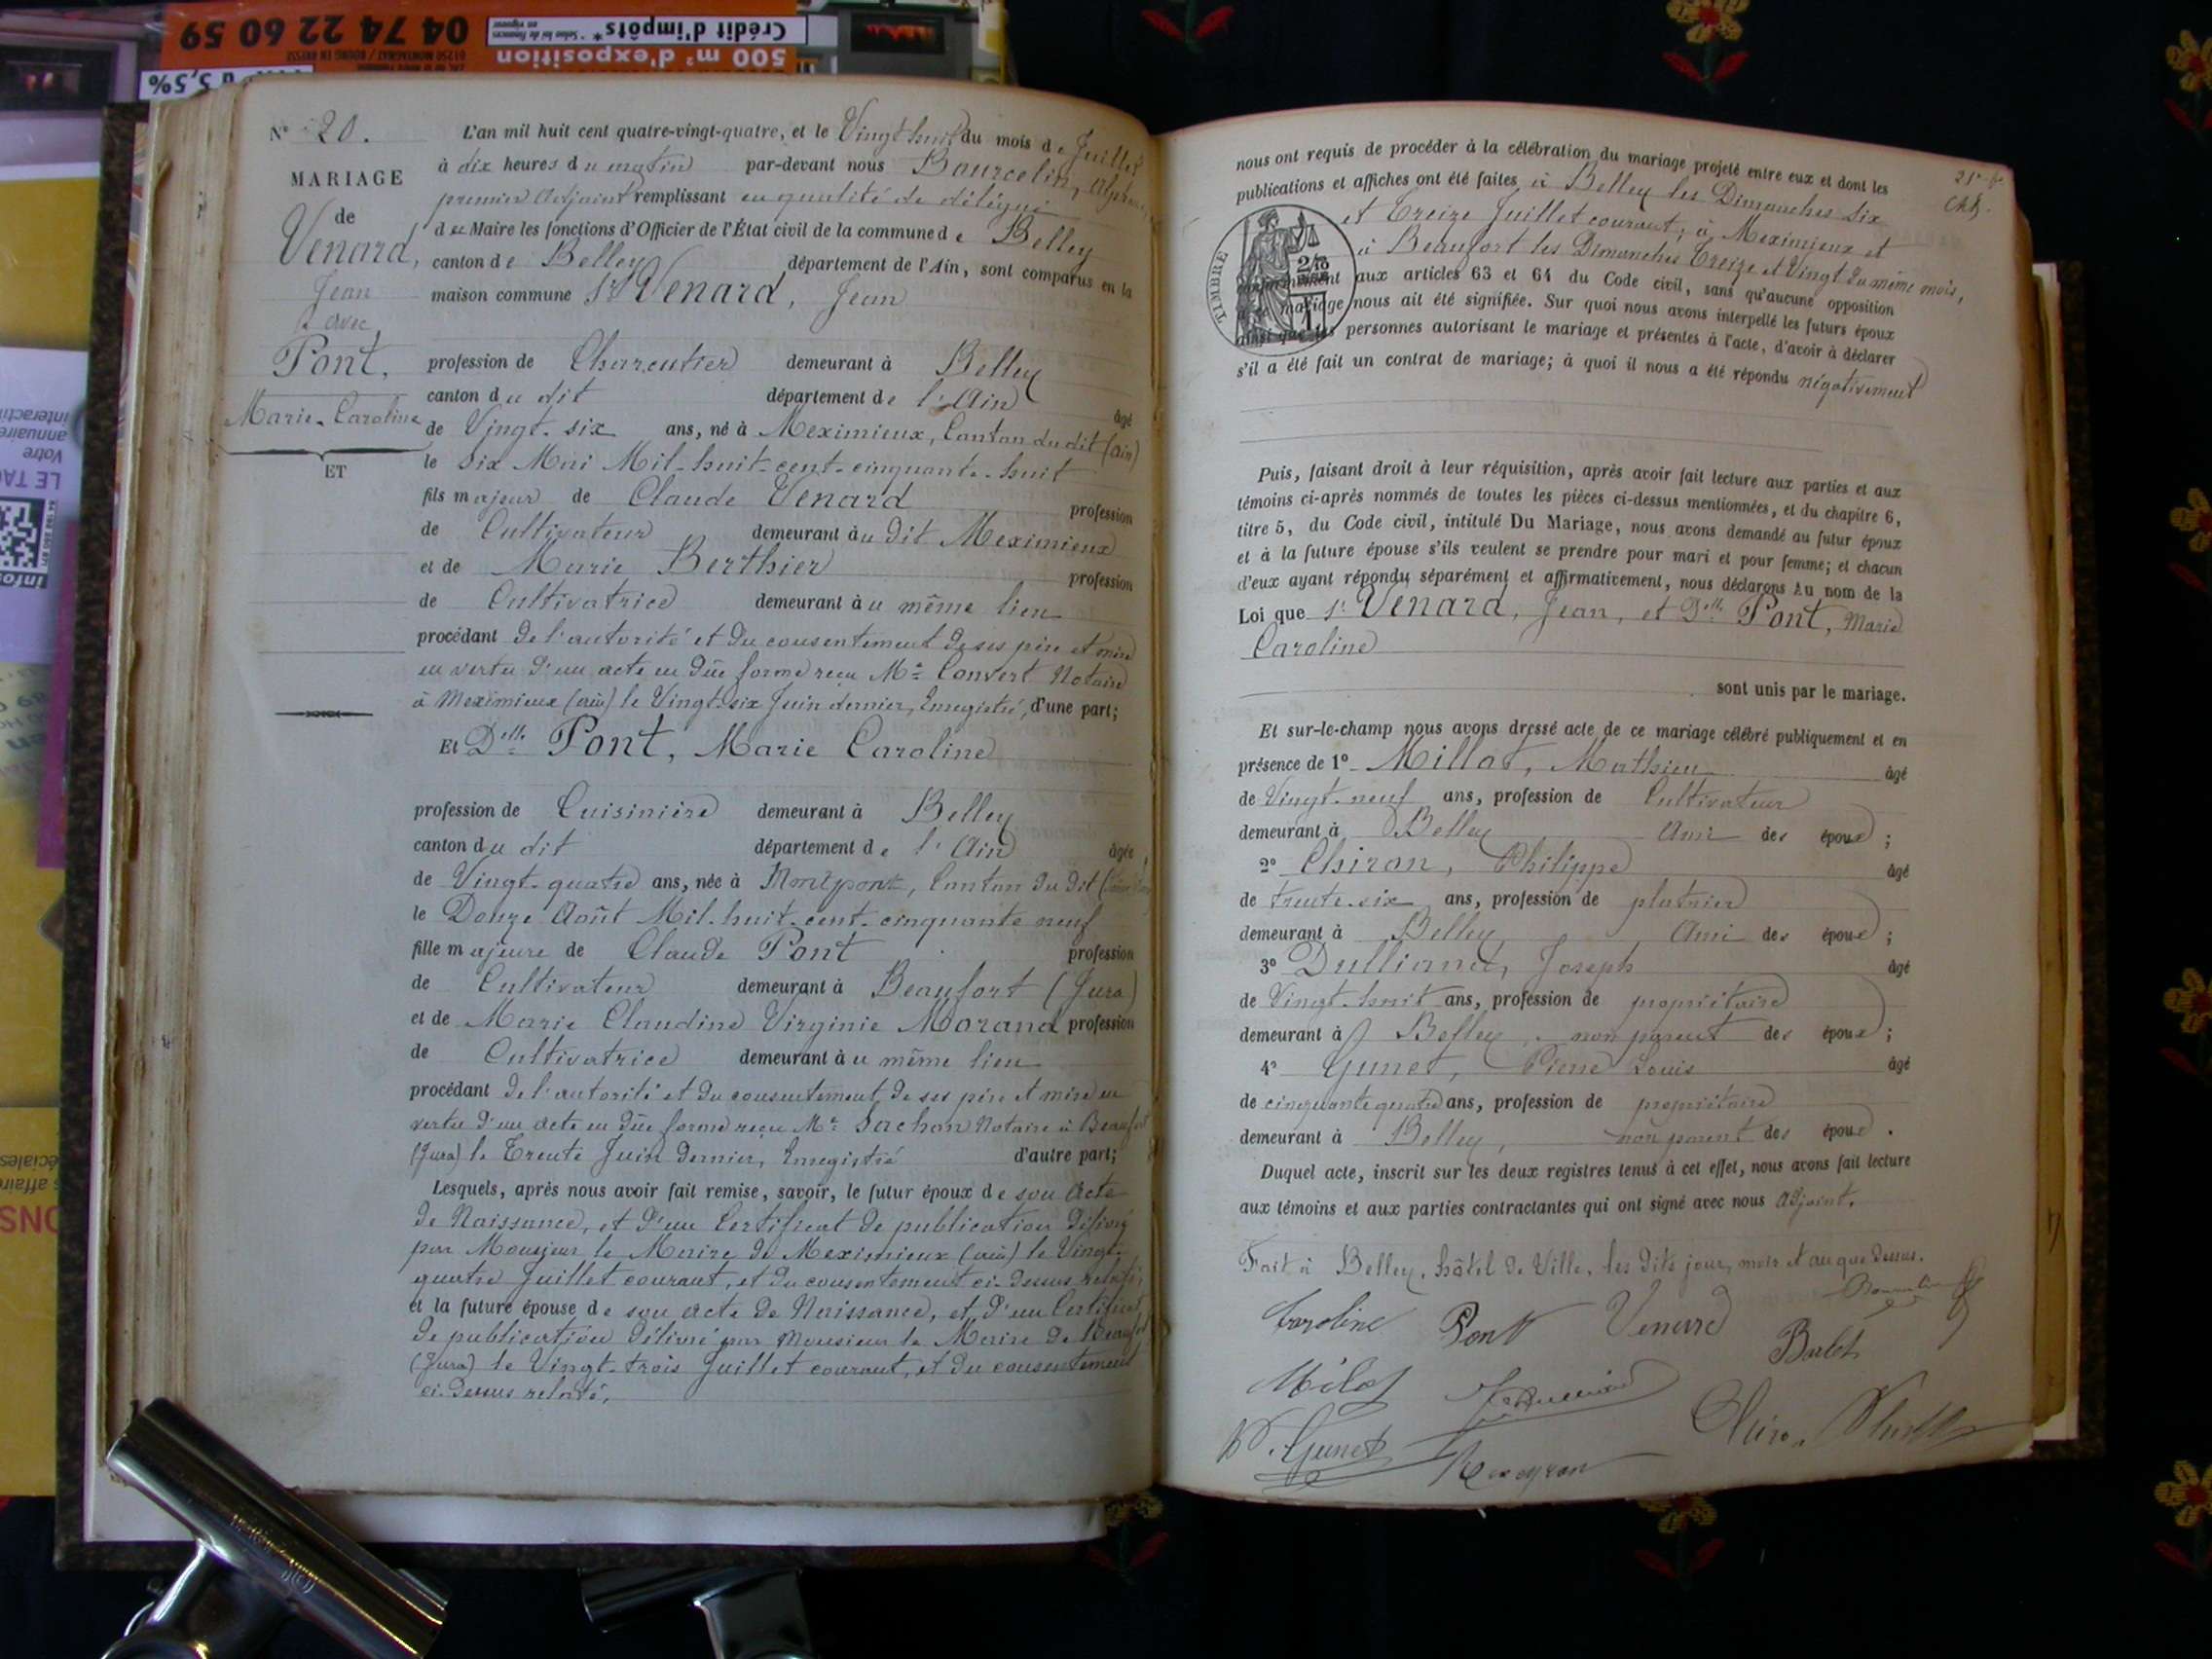 04 74 22 60 59
Crédit d'impôts*
500 m² d'exposition
5,5%
N° 20.
MARIAGE
de
Venard,
Jean
avec
Pont,
Marie-Caroline
ET
L'an mil huit cent quatre-vingt-quatre, et le Vingt huit du mois de Juillet
à dix heures du matin par-devant nous Bourcelin,
premier Adjoint remplissant en qualité de délégué
du Maire les fonctions d'Officier de l'État civil de la commune de Belley
canton de Belley département de l'Ain, sont comparus en la
maison commune Sr Venard, Jean
profession de Charcutier demeurant à Belley
canton du dit département de l'Ain âgé
de Vingt-six ans, né à Meximieux, Canton du dit (Ain)
le Six Mai Mil-huit-cent-cinquante-huit
fils majeur de Claude Venard profession
de Cultivateur demeurant au dit Meximieux
et de Marie Berthier profession
de Cultivatrice demeurant au même lieu
procédant de l'autorité et du consentement de ses père et mère
en vertu d'un acte en dûe forme reçu Me Convert Notaire
à Meximieux (Ain) le Vingt-six Juin dernier, Enregistré, d'une part;
Et Delle Pont, Marie Caroline
profession de Cuisinière demeurant à Belley
canton du dit département de l'Ain âgée
de Vingt-quatre ans, née à Montpont, Canton du dit
le Douze Août Mil-huit-cent-cinquante neuf
fille majeure de Claude Pont profession
de Cultivateur demeurant à Beaufort (Jura)
et de Marie Claudine Virginie Morand profession
de Cultivatrice demeurant au même lieu
procédant de l'autorité et du consentement de ses père et mère en
vertu d'un acte en dûe forme reçu Me Sachon Notaire à Beaufort
(Jura) le Trente Juin dernier, Enregistré d'autre part;
Lesquels, après nous avoir fait remise, savoir, le futur époux de son Acte
de Naissance, et d'un Certificat de publication délivré
par Monsieur le Maire de Meximieux (Ain) le Vingt-
quatre Juillet courant, et du consentement ci-dessus relaté;
et la future épouse de son acte de Naissance, et d'un Certificat
de publication délivré par Monsieur le Maire de Beaufort
(Jura) le Vingt-trois Juillet courant, et du consentement
ci-dessus relaté,
nous ont requis de procéder à la célébration du mariage projeté entre eux et dont les
publications et affiches ont été faites à Belley les Dimanches Six
et Treize Juillet courant; à Meximieux et
à Beaufort les Dimanches Treize et Vingt du même mois,
conformément aux articles 63 et 64 du Code civil, sans qu'aucune opposition
mariage nous ait été signifiée. Sur quoi nous avons interpellé les futurs époux
ainsi que les personnes autorisant le mariage et présentes à l'acte, d'avoir à déclarer
s'il a été fait un contrat de mariage; à quoi il nous a été répondu négativement
TIMBRE
Puis, faisant droit à leur réquisition, après avoir fait lecture aux parties et aux
témoins ci-après nommés de toutes les pièces ci-dessus mentionnées, et du chapitre 6,
titre 5, du Code civil, intitulé Du Mariage, nous avons demandé au futur époux
et à la future épouse s'ils veulent se prendre pour mari et pour femme; et chacun
d'eux ayant répondu séparément et affirmativement, nous déclarons Au nom de la
Loi que Sr Venard, Jean, et Delle Pont, Marie
Caroline
sont unis par le mariage.
Et sur-le-champ nous avons dressé acte de ce mariage célébré publiquement et en
présence de 1° Millot, Mathieu âgé
de Vingt-neuf ans, profession de Cultivateur
demeurant à Belley Ami des époux;
2° Chiron, Philippe âgé
de trente-six ans, profession de platrier
demeurant à Belley Ami des époux;
3° Dulliand, Joseph âgé
de Vingt-huit ans, profession de propriétaire
demeurant à Belley, non parent des époux;
4° Gunet, Pierre Louis âgé
de cinquante quatre ans, profession de propriétaire
demeurant à Belley, non parent des époux.
Duquel acte, inscrit sur les deux registres tenus à cet effet, nous avons fait lecture
aux témoins et aux parties contractantes qui ont signé avec nous Adjoint.
Fait à Belley, hôtel de Ville, les dits jour, mois et an que dessus.
Caroline Pont Venard
Milot
Gunet